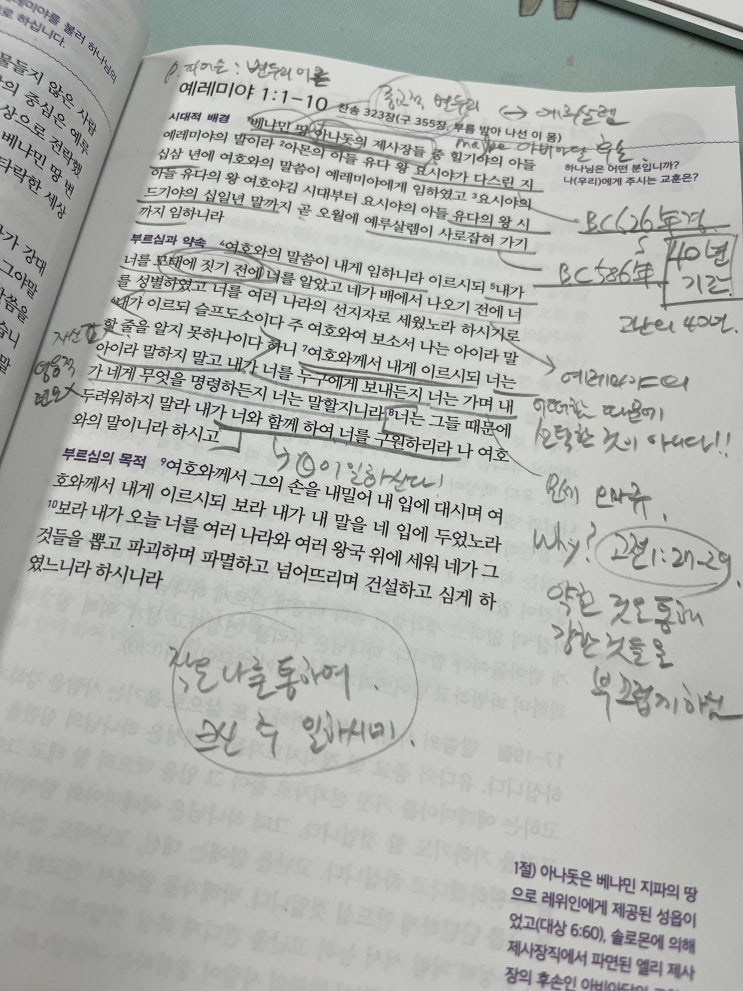 레미야를 불러 하나님의
로 하십니다.
물들지 않은 사람
의 중심은 예루
상으로 전락했
베냐민 땅 변
타락한 세상
가 강대
그야말
씀을
습니
말
P. 피터슨 : 변두리 이론
종교적 변두리 ↔ 예루살렘
예레미야 1:1-10 찬송 323장(구 355장, 부름 받아 나선 이 몸)
maybe 아비아달 후손.
하나님은 어떤 분입니까?
나(우리)에게 주시는 교훈은?
시대적 배경 ¹베냐민 땅 아나돗의 제사장들 중 힐기야의 아들
예레미야의 말이라 ²아몬의 아들 유다 왕 요시야가 다스린 지
십삼 년에 여호와의 말씀이 예레미야에게 임하였고 ³요시야의
아들 유다의 왕 여호야김 시대부터 요시야의 아들 유다의 왕 시
드기야의 십일년 말까지 곧 오월에 예루살렘이 사로잡혀 가기
까지 임하니라
BC 626년경
S
BC 586年
40년
기간
고난의 40년.
부르심과 약속 ⁴여호와의 말씀이 내게 임하니라 이르시되 ⁵내가
너를 모태에 짓기 전에 너를 알았고 네가 배에서 나오기 전에 너
를 성별하였고 너를 여러 나라의 선지자로 세웠노라 하시기로
⁶내가 이르되 슬프도소이다 주 여호와여 보소서 나는 아이라 말
할 줄을 알지 못하나이다 하니 ⁷여호와께서 내게 이르시되 너는
아이라 말하지 말고 내가 너를 누구에게 보내든지 너는 가며 내
가 네게 무엇을 명령하든지 너는 말할지니라 ⁸너는 그들 때문에
두려워하지 말라 내가 너와 함께 하여 너를 구원하리라 나 여호
와의 말이니라 하시고
예레미야의
때문에
선택한 것이 아니다!!
이 일하신다!
부르심의 목적 ⁹여호와께서 그의 손을 내밀어 내 입에 대시며 여
호와께서 내게 이르시되 보라 내가 내 말을 네 입에 두었노라
¹⁰보라 내가 오늘 너를 여러 나라와 여러 왕국 위에 세워 네가 그
것들을 뽑고 파괴하며 파멸하고 넘어뜨리며 건설하고 심게 하
였느니라 하시니라
Why? 고전 1:27-29.
약한 것을 통해
강한 것들을
부끄럽게 하심
작은 나를 통하여.
크신 주 일하시미.
1절) 아나돗은 베냐민 지파의 땅
으로 레위인에게 제공된 성읍이
었고(대상 6:60), 솔로몬에 의해
제사장직에서 파면된 엘리 제사
장의 후손인 아비아달의